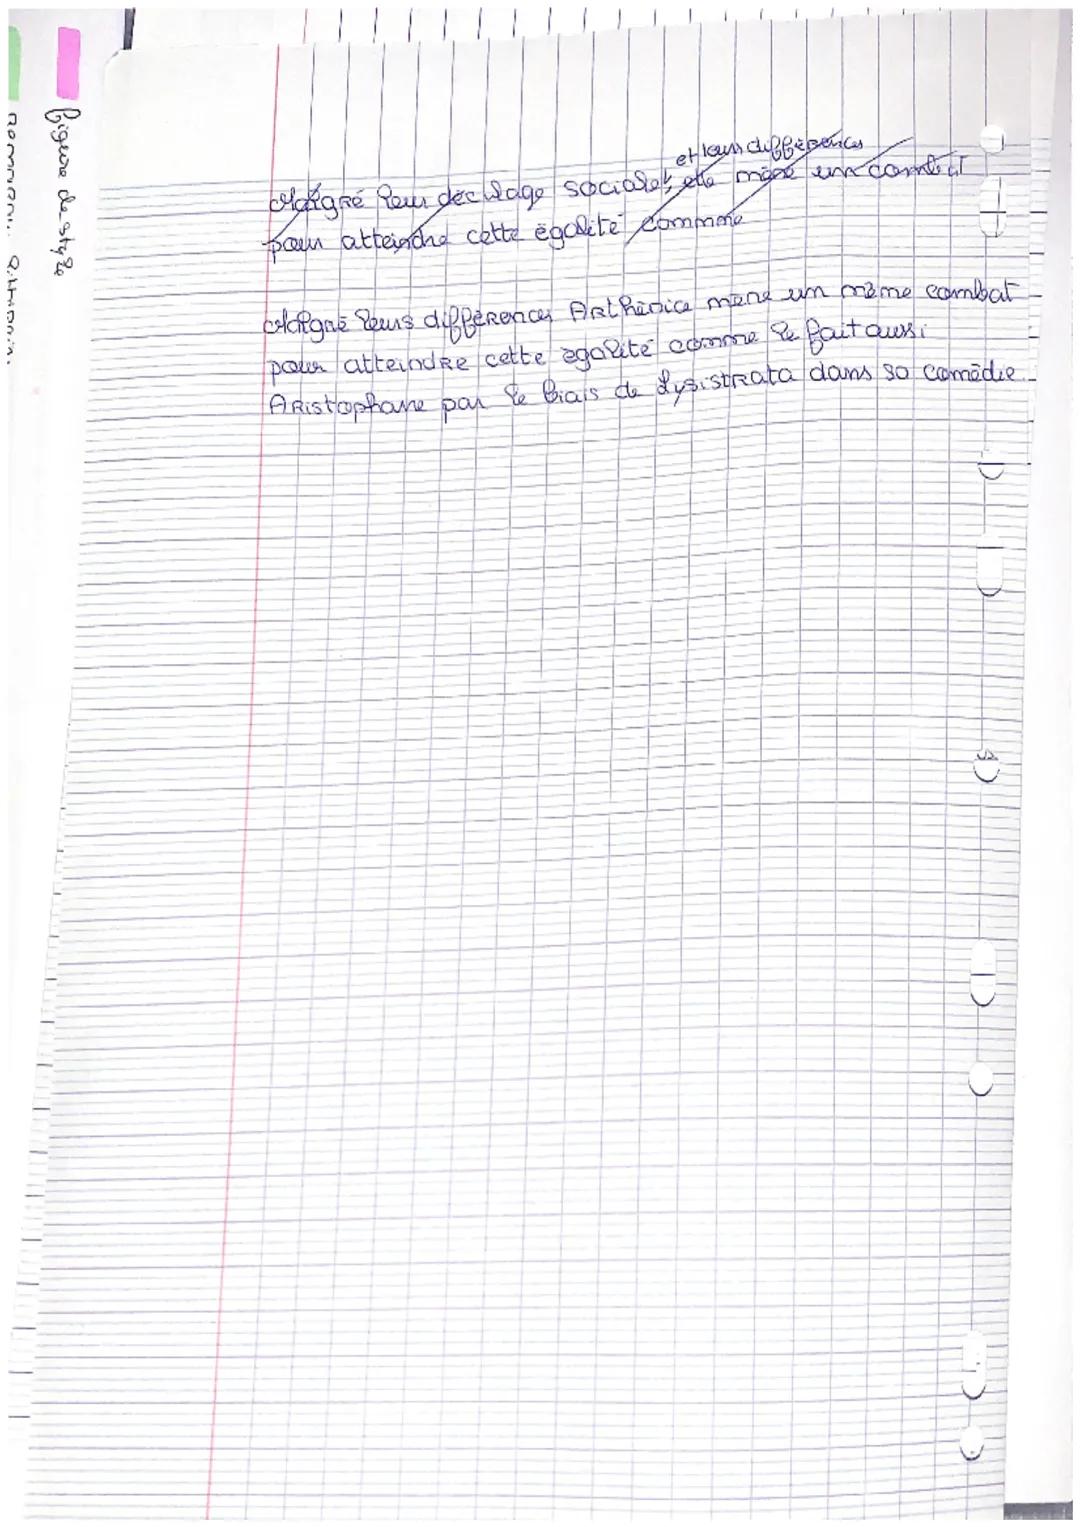 et leurs différences
Malgré leur décalage sociale, elle mène un combat
pour atteindre cette égalité comme
Malgré leurs différences Arthénice mène un même combat
pour atteindre cette égalité comme le fait aussi
Aristophane par le biais de Lysistrata dans sa comédie.
Figure de style